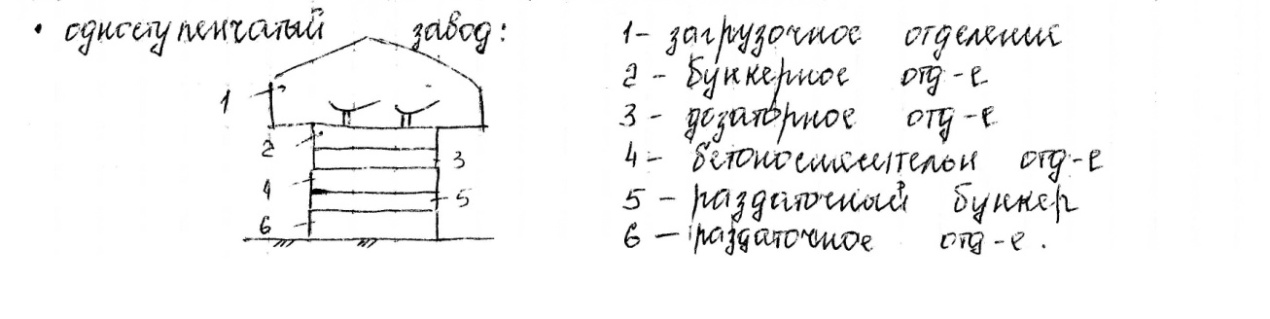 • одноступенчатый завод:
1- загрузочное отделение
2 - бункерное отд-е
3 - дозаторное отд-е
4 - бетоносмесительн отд-е
5 - раздаточный бункер
6 - раздаточное отд-е.
1
2
3
4
5
6